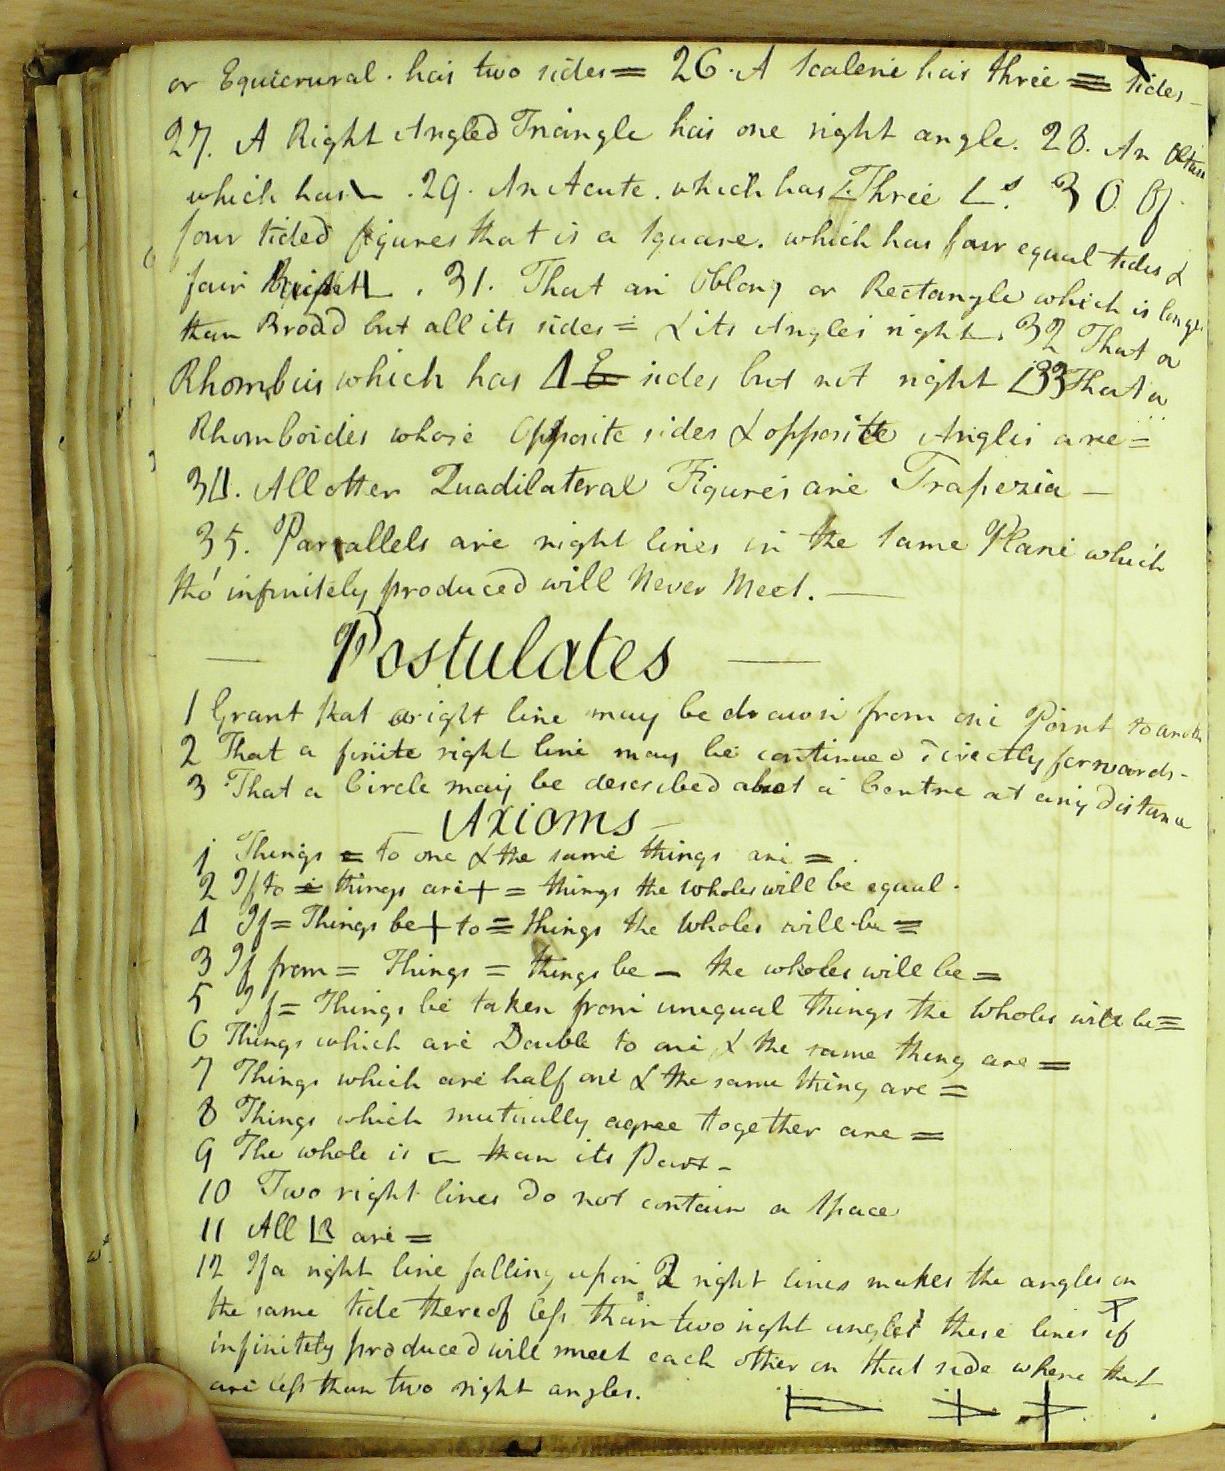 or Equicrural. has two sides = 26. A Scalene has three = sides -
27. A Right Angled Triangle has one right angle. 28. An Obtuse
which has ∟. 29. An Acute. which has Three ∠s. 30 Of
four sided figures that is a square. which has four equal sides &
four Right ∟. 31. That an Oblong or Rectangle which is longer
than Broad but all its sides = & its Angles right. 32 That a
Rhombus which has 4 sides but not right ∠ 33 That a
Rhomboides whose Opposite sides & opposite Angles are =
34. All other Quadilateral Figures are Trapezia -
35. Parrallels are right lines in the same Plane which
tho' infinitely produced will Never Meet. —
— Postulates —
1 Grant that a right line may be drawn from one Point to another
2 That a finite right line may be continued directly forwards -
3 That a Circle may be described about a Centre at any distance
- Axioms -
1 Things = to one & the same things are =.
2 If to = things are + = things the wholes will be equal.
4 If = Things be + to = things the Wholes will be =
3 If from = Things = things be - the wholes will be =
5 If = Things be taken from unequal things the Wholes will be =
6 Things which are Double to one & the same thing are =
7 Things which are half one & the same thing are =
8 Things which mutually agree together are =
9 The whole is ⊏ than its Part -
10 Two right lines do not contain a Space
11 All ∟R are =
12 If a right line falling upon 2 right lines makes the angles on
the same side thereof less than two right angles these lines if
infinitely produced will meet each other on that side where the ∠
are less than two right angles.